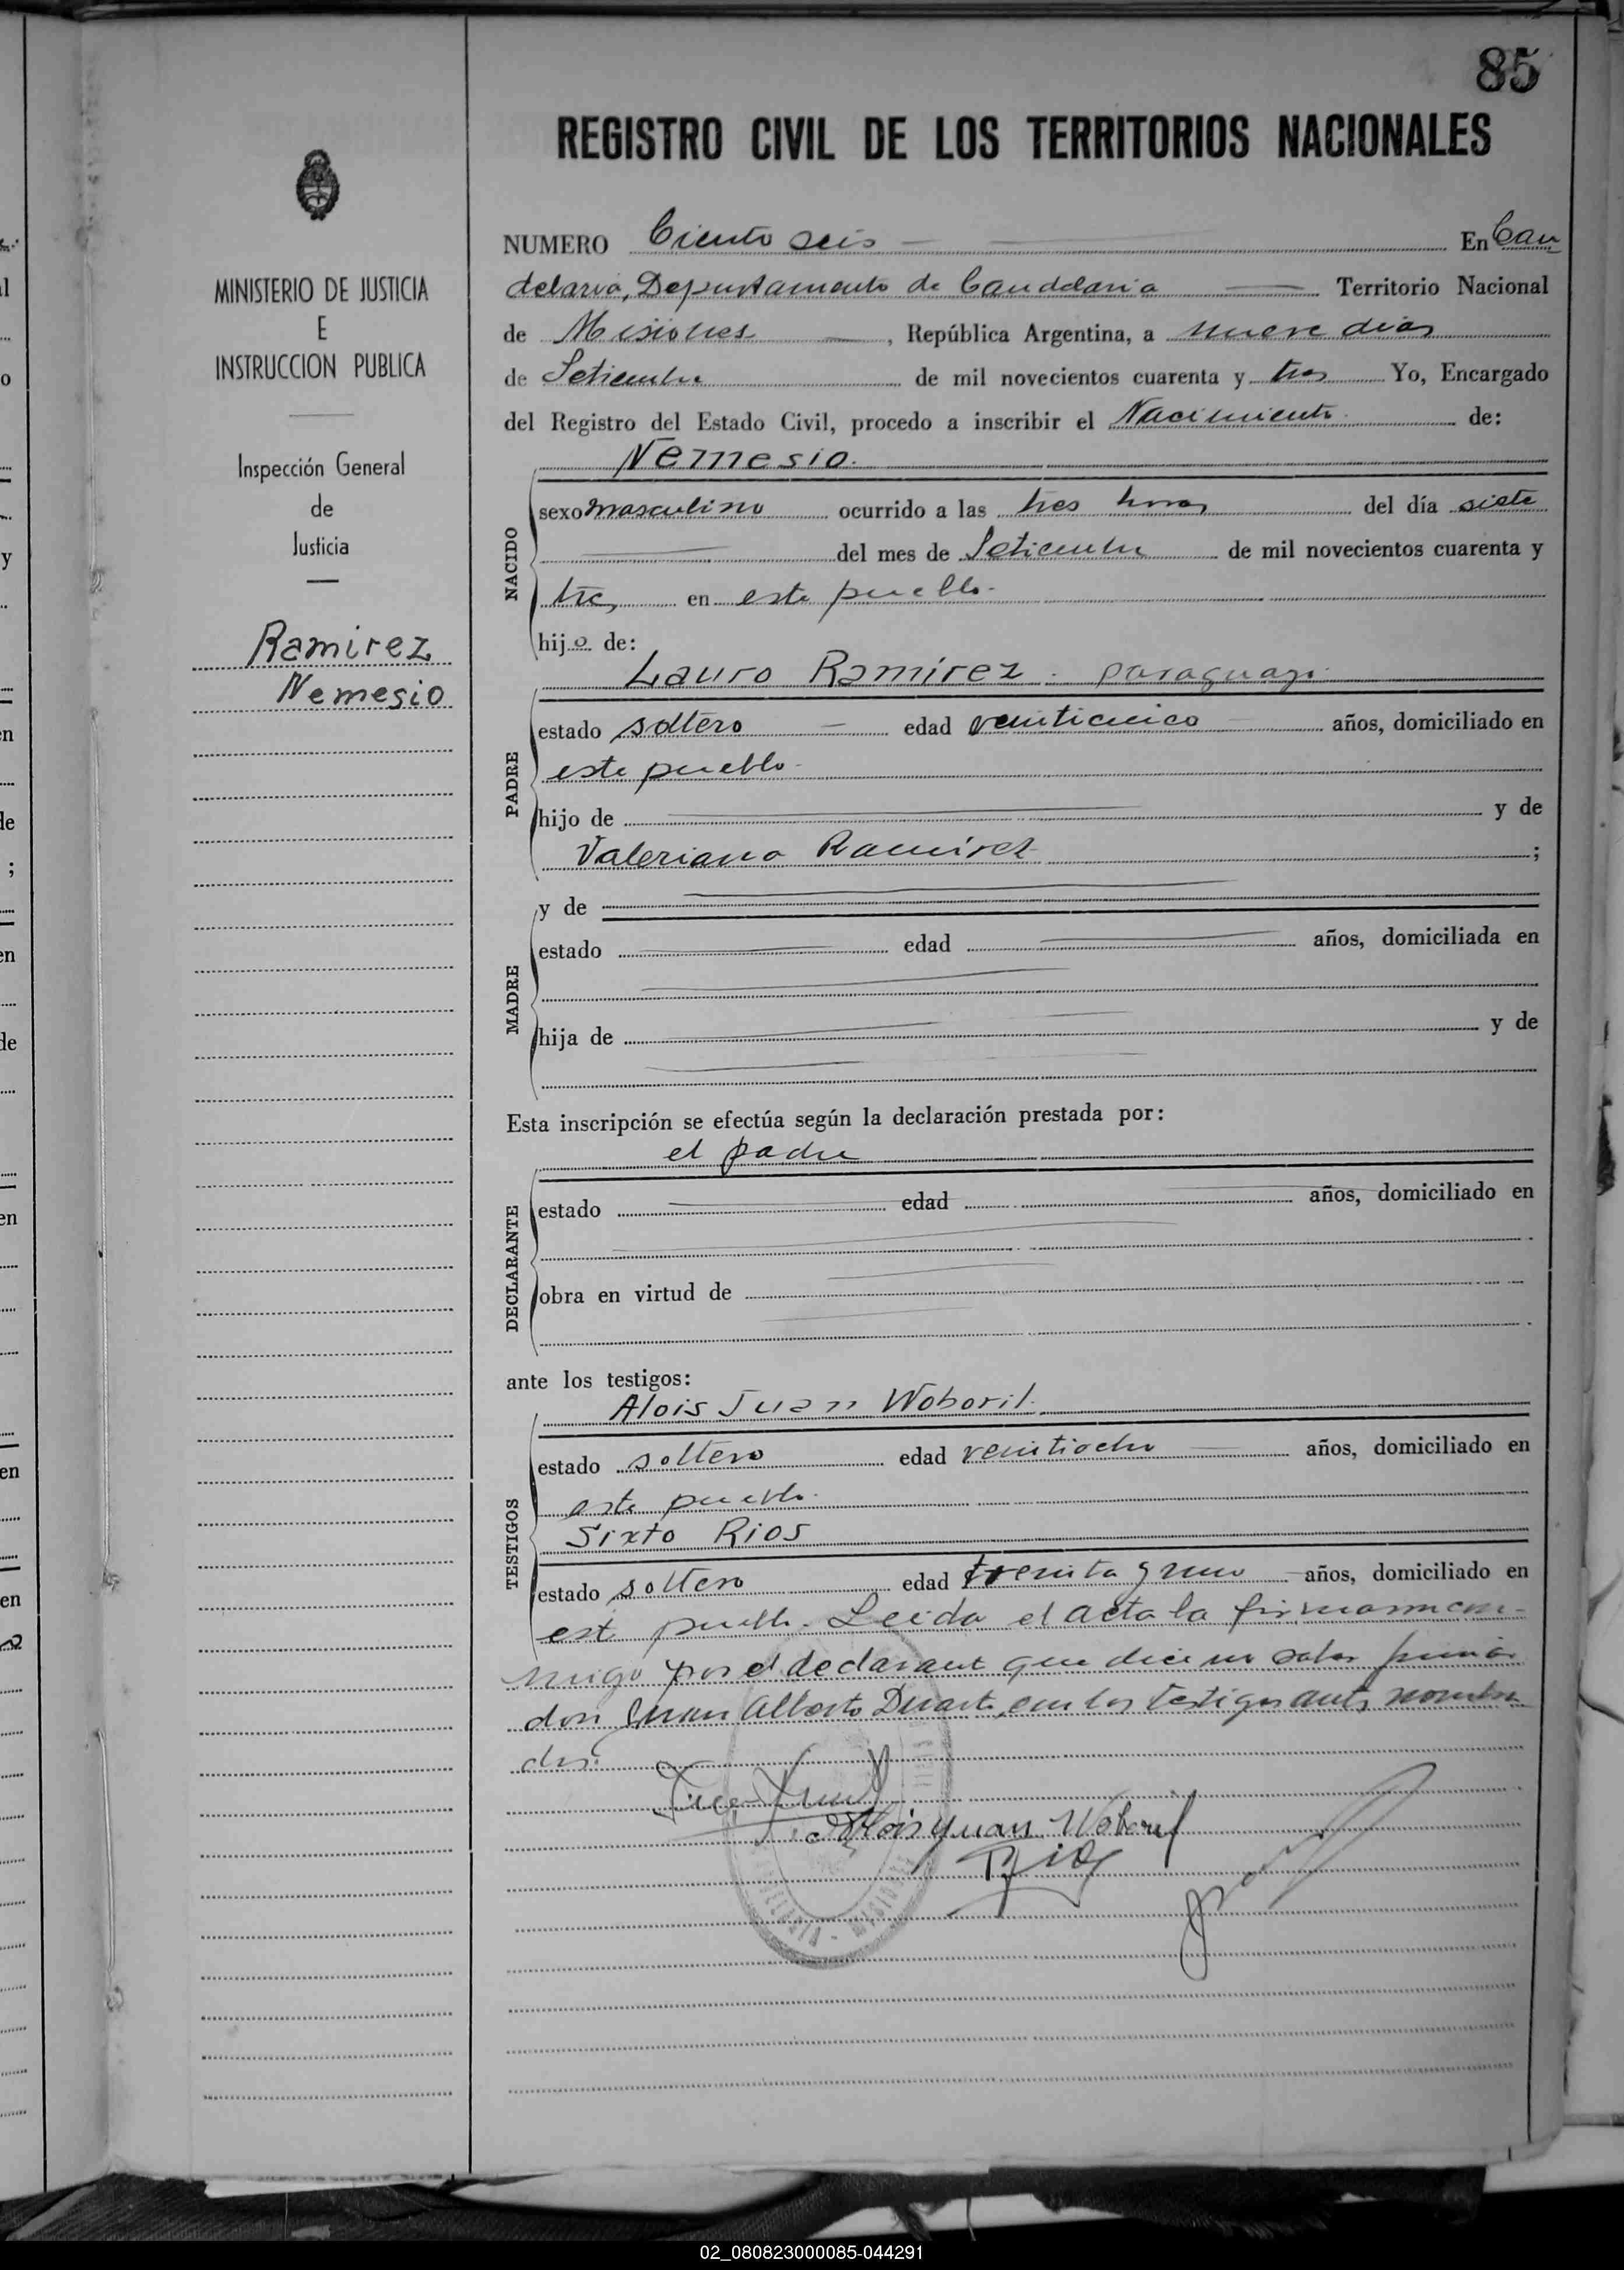 85
REGISTRO CIVIL DE LOS TERRITORIOS NACIONALES
MINISTERIO DE JUSTICIA
E
INSTRUCCION PUBLICA
Inspección General
de
Justicia
Ramirez
Nemesio
NUMERO Ciento seis En Can
delaria, Departamento de Candelaria Territorio Nacional
de Misiones, República Argentina, a nueve dias
de Setiembre de mil novecientos cuarenta y tres Yo, Encargado
del Registro del Estado Civil, procedo a inscribir el Nacimiento de:
Nemesio.
NACIDO
sexo masculino ocurrido a las tres horas del día siete
del mes de Setiembre de mil novecientos cuarenta y
tres en este pueblo.
hijo de:
Lauro Ramirez. paraguayo
PADRE
estado soltero edad veinticinco años, domiciliado en
este pueblo
hijo de y de
Valeriana Ramirez ;
y de
MADRE
estado edad años, domiciliada en
hija de y de
Esta inscripción se efectúa según la declaración prestada por:
el padre
DECLARANTE
estado edad años, domiciliado en
obra en virtud de
ante los testigos:
Alois Juan Woboril.
TESTIGOS
estado soltero edad veintiocho años, domiciliado en
este pueblo.
Sixto Rios
estado soltero edad treinta y uno años, domiciliado en
este pueblo. Leida el acta la firmaron con-
migo por el declarante que dice no saber firmar
don Juan Alberto Duarte, con los testigos antes nombra
dos.
Alois Juan Woboril
Rios
MISIONES
02_080823000085-044291